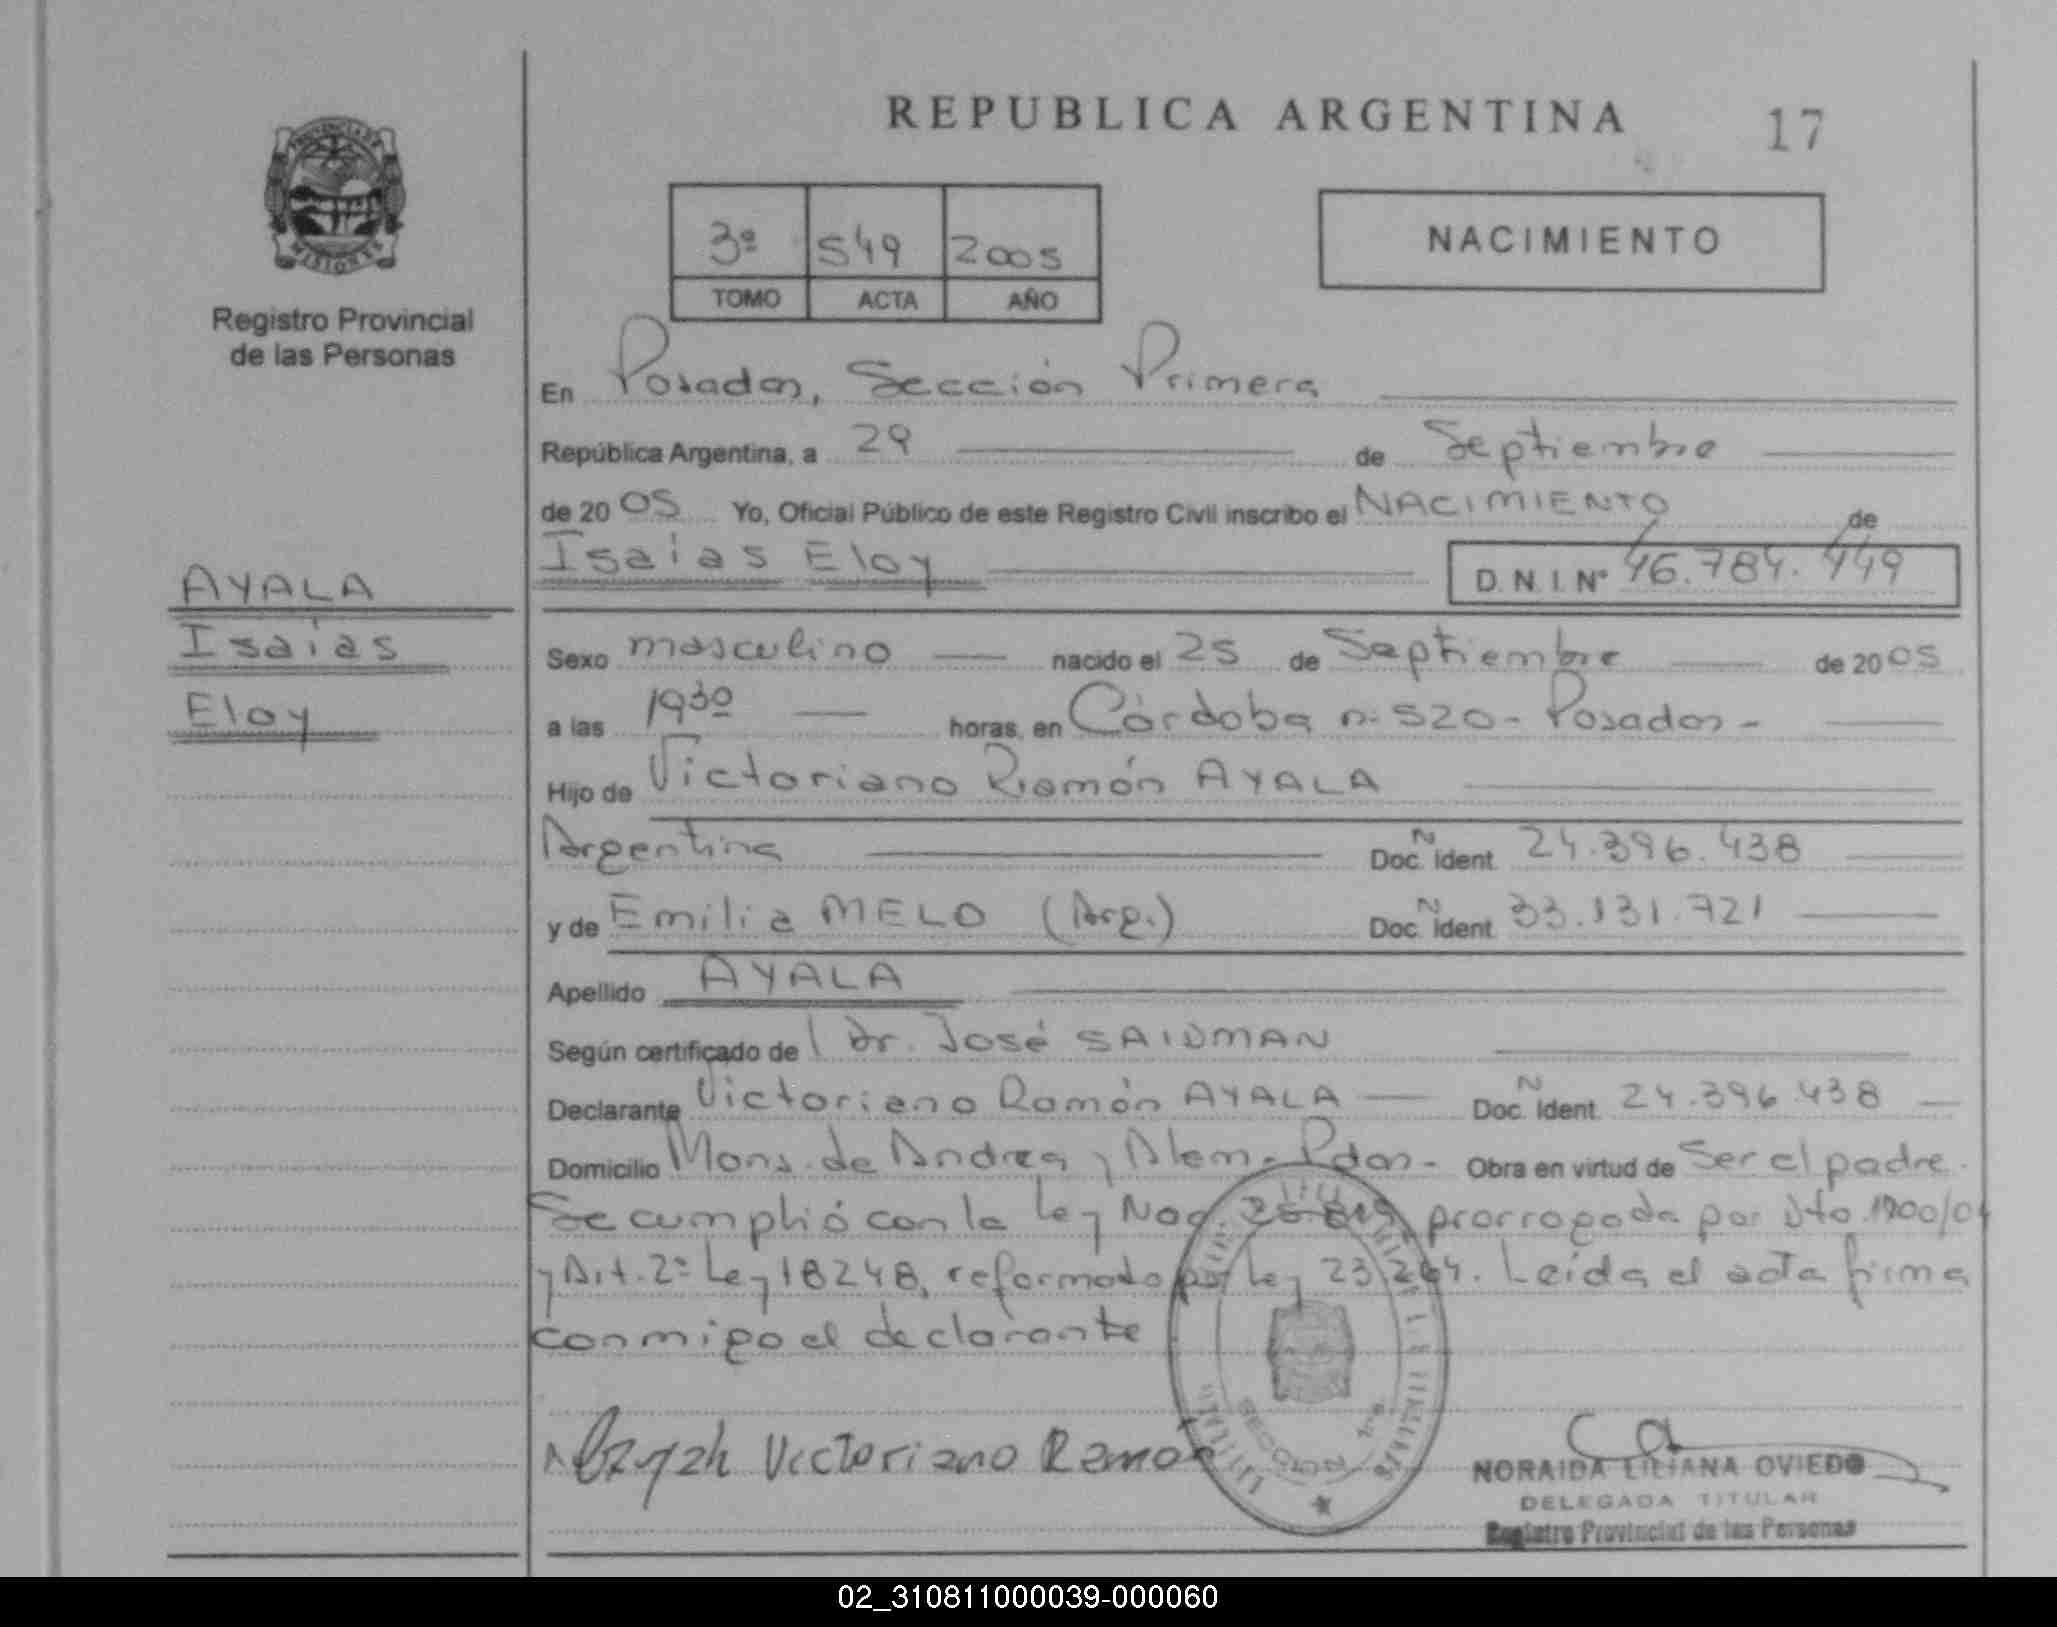 REPUBLICA ARGENTINA
17
PROVINCIA DE
MISIONES
Registro Provincial
de las Personas
3º 549 2005
TOMO ACTA AÑO
NACIMIENTO
En Posadas, Sección Primera
República Argentina, a 29 de Septiembre
de 2005 Yo, Oficial Público de este Registro Civil inscribo el NACIMIENTO de
Isaias Eloy D. N. I. Nº 46.784.449
AYALA
Isaías
Eloy
Sexo masculino nacido el 25 de Septiembre de 2005
a las 19³⁰ horas, en Córdoba nº 520 - Posadas -
Hijo de Victoriano Ramón AYALA
Argentina Doc. N Ident. 24.396.438
y de Emilia MELO (Arg.) Doc. N Ident. 33.131.721
Apellido AYALA
Según certificado de Dr. José SAIDMAN
Declarante Victoriano Ramón AYALA Doc. N Ident. 24.396.438
Domicilio Mons. de Andrea y Alem - Pdas - Obra en virtud de Ser el padre.
Se cumplió con la Ley Nac. 25.819 prorrogada por Dto.
y Art. 2º Ley 18248, reformado por Ley 23.264. Leída el acta firma
conmigo el declarante
Victoriano Ramón
SECCION 1ra
NORAIDA LILIANA OVIEDO
DELEGADA TITULAR
Registro Provincial de las Personas
02_310811000039-000060